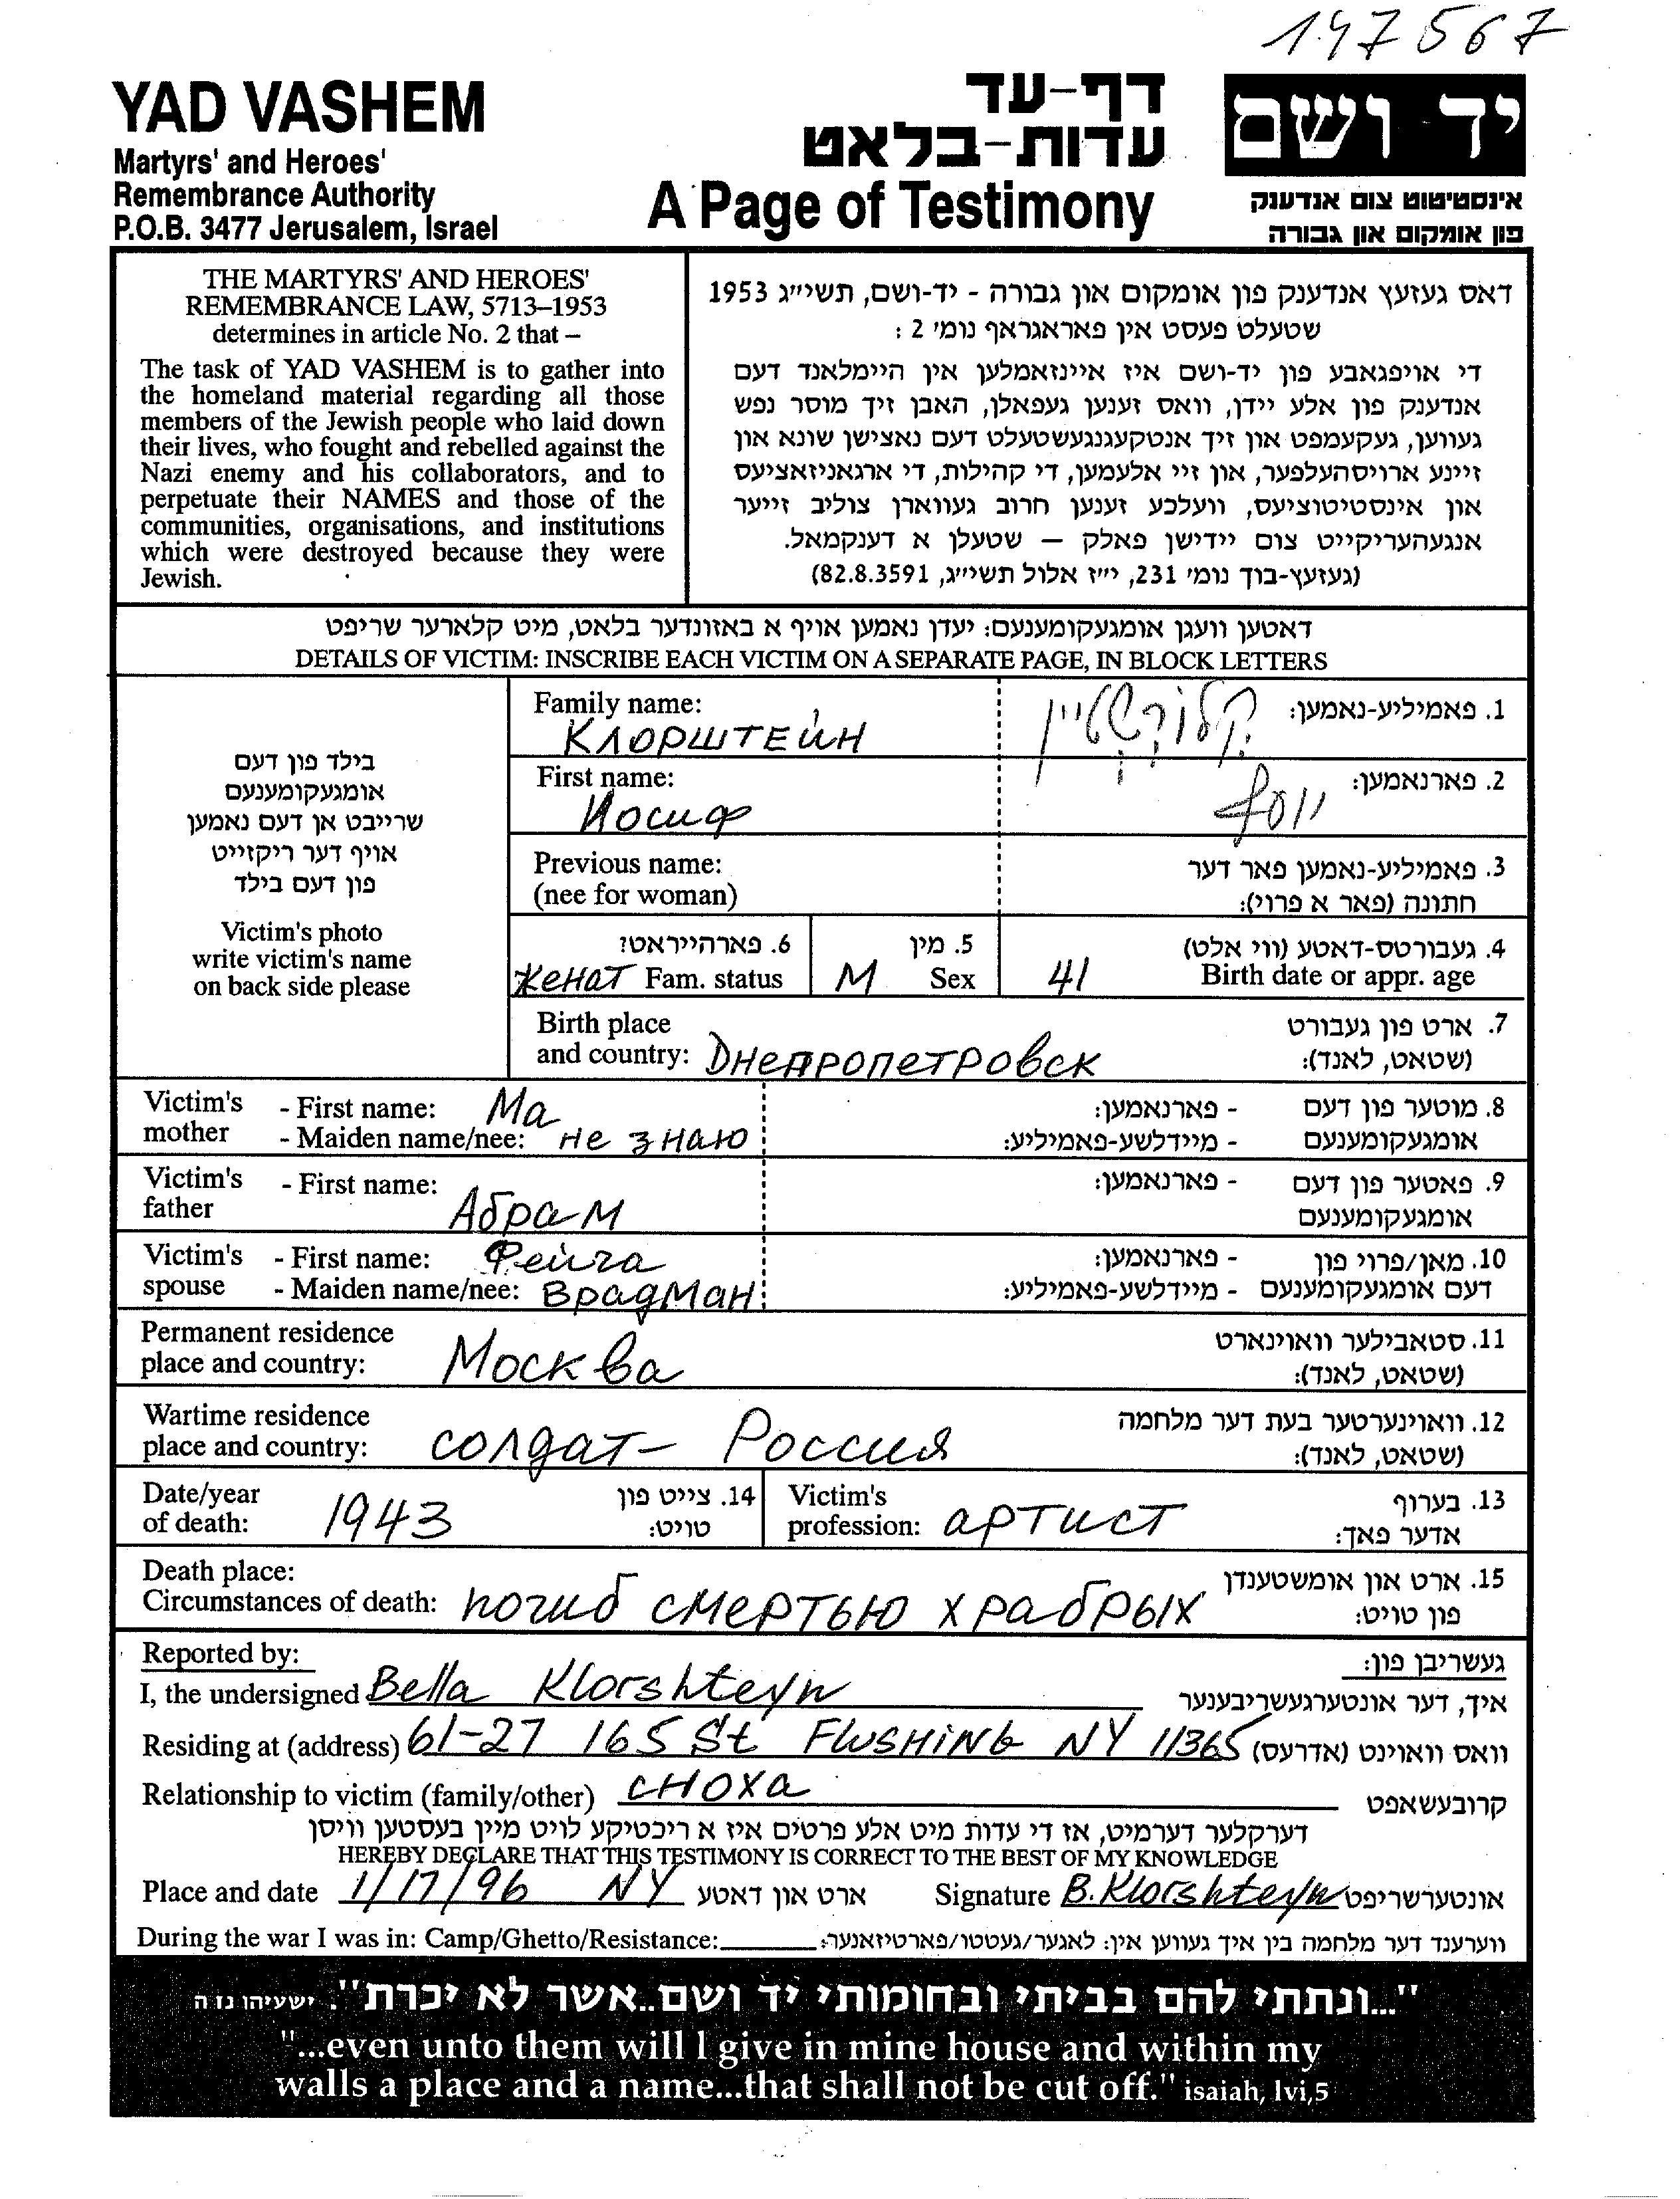 147567
YAD VASHEM
Martyrs' and Heroes'
Remembrance Authority
P.O.B. 3477 Jerusalem, Israel
דף-עד
עדות-בלאט
A Page of Testimony
יד ושם
אינסטיטוט צום אנדענק
פון אומקום און גבורה
THE MARTYRS' AND HEROES'
REMEMBRANCE LAW, 5713–1953
determines in article No. 2 that –
The task of YAD VASHEM is to gather into
the homeland material regarding all those
members of the Jewish people who laid down
their lives, who fought and rebelled against the
Nazi enemy and his collaborators, and to
perpetuate their NAMES and those of the
communities, organisations, and institutions
which were destroyed because they were
Jewish.
דאס געזעץ אנדענק פון אומקום און גבורה - יד-ושם, תשי״ג 1953
שטעלט פעסט אין פאראגראף נומ׳ 2 :
די אויפגאבע פון יד-ושם איז איינזאמלען אין היימלאנד דעם
אנדענק פון אלע יידן, וואס זענען געפאלן, האבן זיך מוסר נפש
געווען, געקעמפט און זיך אנטקעגנגעשטעלט דעם נאצישן שונא און
זיינע ארויסהעלפער, און זיי אלעמען, די קהילות, די ארגאניזאציעס
און אינסטיטוציעס, וועלכע זענען חרוב געווארן צוליב זייער
אנגעהעריקייט צום יידישן פאלק — שטעלן א דענקמאל.
(געזעץ-בוך נומ׳ 231, י״ז אלול תשי״ג, 82.8.3591)
דאטען וועגן אומגעקומענעם: יעדן נאמען אויף א באזונדער בלאט, מיט קלארער שריפט
DETAILS OF VICTIM: INSCRIBE EACH VICTIM ON A SEPARATE PAGE, IN BLOCK LETTERS
בילד פון דעם
אומגעקומענעם
שרייבט אן דעם נאמען
אויף דער ריקזייט
פון דעם בילד
Victim's photo
write victim's name
on back side please
Family name: КЛОРШТЕЙН
1. פאמיליע-נאמען: קלורשטיין
First name: Иосиф
2. פארנאמען: יוסף
Previous name:
(nee for woman)
3. פאמיליע-נאמען פאר דער
חתונה (פאר א פרוי):
6. פארהייראט?
женат Fam. status
5. מין
M Sex
4. געבורטס-דאטע (ווי אלט)
41 Birth date or appr. age
Birth place
and country: Днепропетровск
7. ארט פון געבורט
(שטאט, לאנד):
Victim's mother - First name: Ма
- Maiden name/nee: не знаю
8. מוטער פון דעם - פארנאמען:
אומגעקומענעם - מיידלשע-פאמיליע:
Victim's father - First name: Абрам
9. פאטער פון דעם - פארנאמען:
אומגעקומענעם
Victim's spouse - First name: Фейга
- Maiden name/nee: Врадман
10. מאן/פרוי פון - פארנאמען:
דעם אומגעקומענעם - מיידלשע-פאמיליע:
Permanent residence
place and country: Москва
11. סטאבילער וואוינארט
(שטאט, לאנד):
Wartime residence
place and country: солдат - Россия
12. וואוינערטער בעת דער מלחמה
(שטאט, לאנד):
Date/year
of death: 1943
14. צייט פון
טויט:
Victim's
profession: артист
13. בערוף
אדער פאך:
Death place:
Circumstances of death: погиб смертью храбрых
15. ארט און אומשטענדן
פון טויט:
Reported by:
געשריבן פון:
I, the undersigned Bella Klorshteyn איך, דער אונטערגעשריבענער
Residing at (address) 61-27 165 St Flushing NY 11365 וואס וואוינט (אדרעס)
Relationship to victim (family/other) сноха קרובעשאפט
דערקלער דערמיט, אז די עדות מיט אלע פרטים איז א ריכטיקע לויט מיין בעסטען וויסן
HEREBY DECLARE THAT THIS TESTIMONY IS CORRECT TO THE BEST OF MY KNOWLEDGE
Place and date 1/17/96 NY ארט און דאטע Signature B. Klorshteyn אונטערשריפט
During the war I was in: Camp/Ghetto/Resistance: ווערענד דער מלחמה בין איך געווען אין: לאגער/געטטו/פארטיזאנער:
"...ונתתי להם בביתי ובחומותי יד ושם..אשר לא יכרת". ישעיהו נו ה
"...even unto them will I give in mine house and within my
walls a place and a name...that shall not be cut off." isaiah, lvi,5